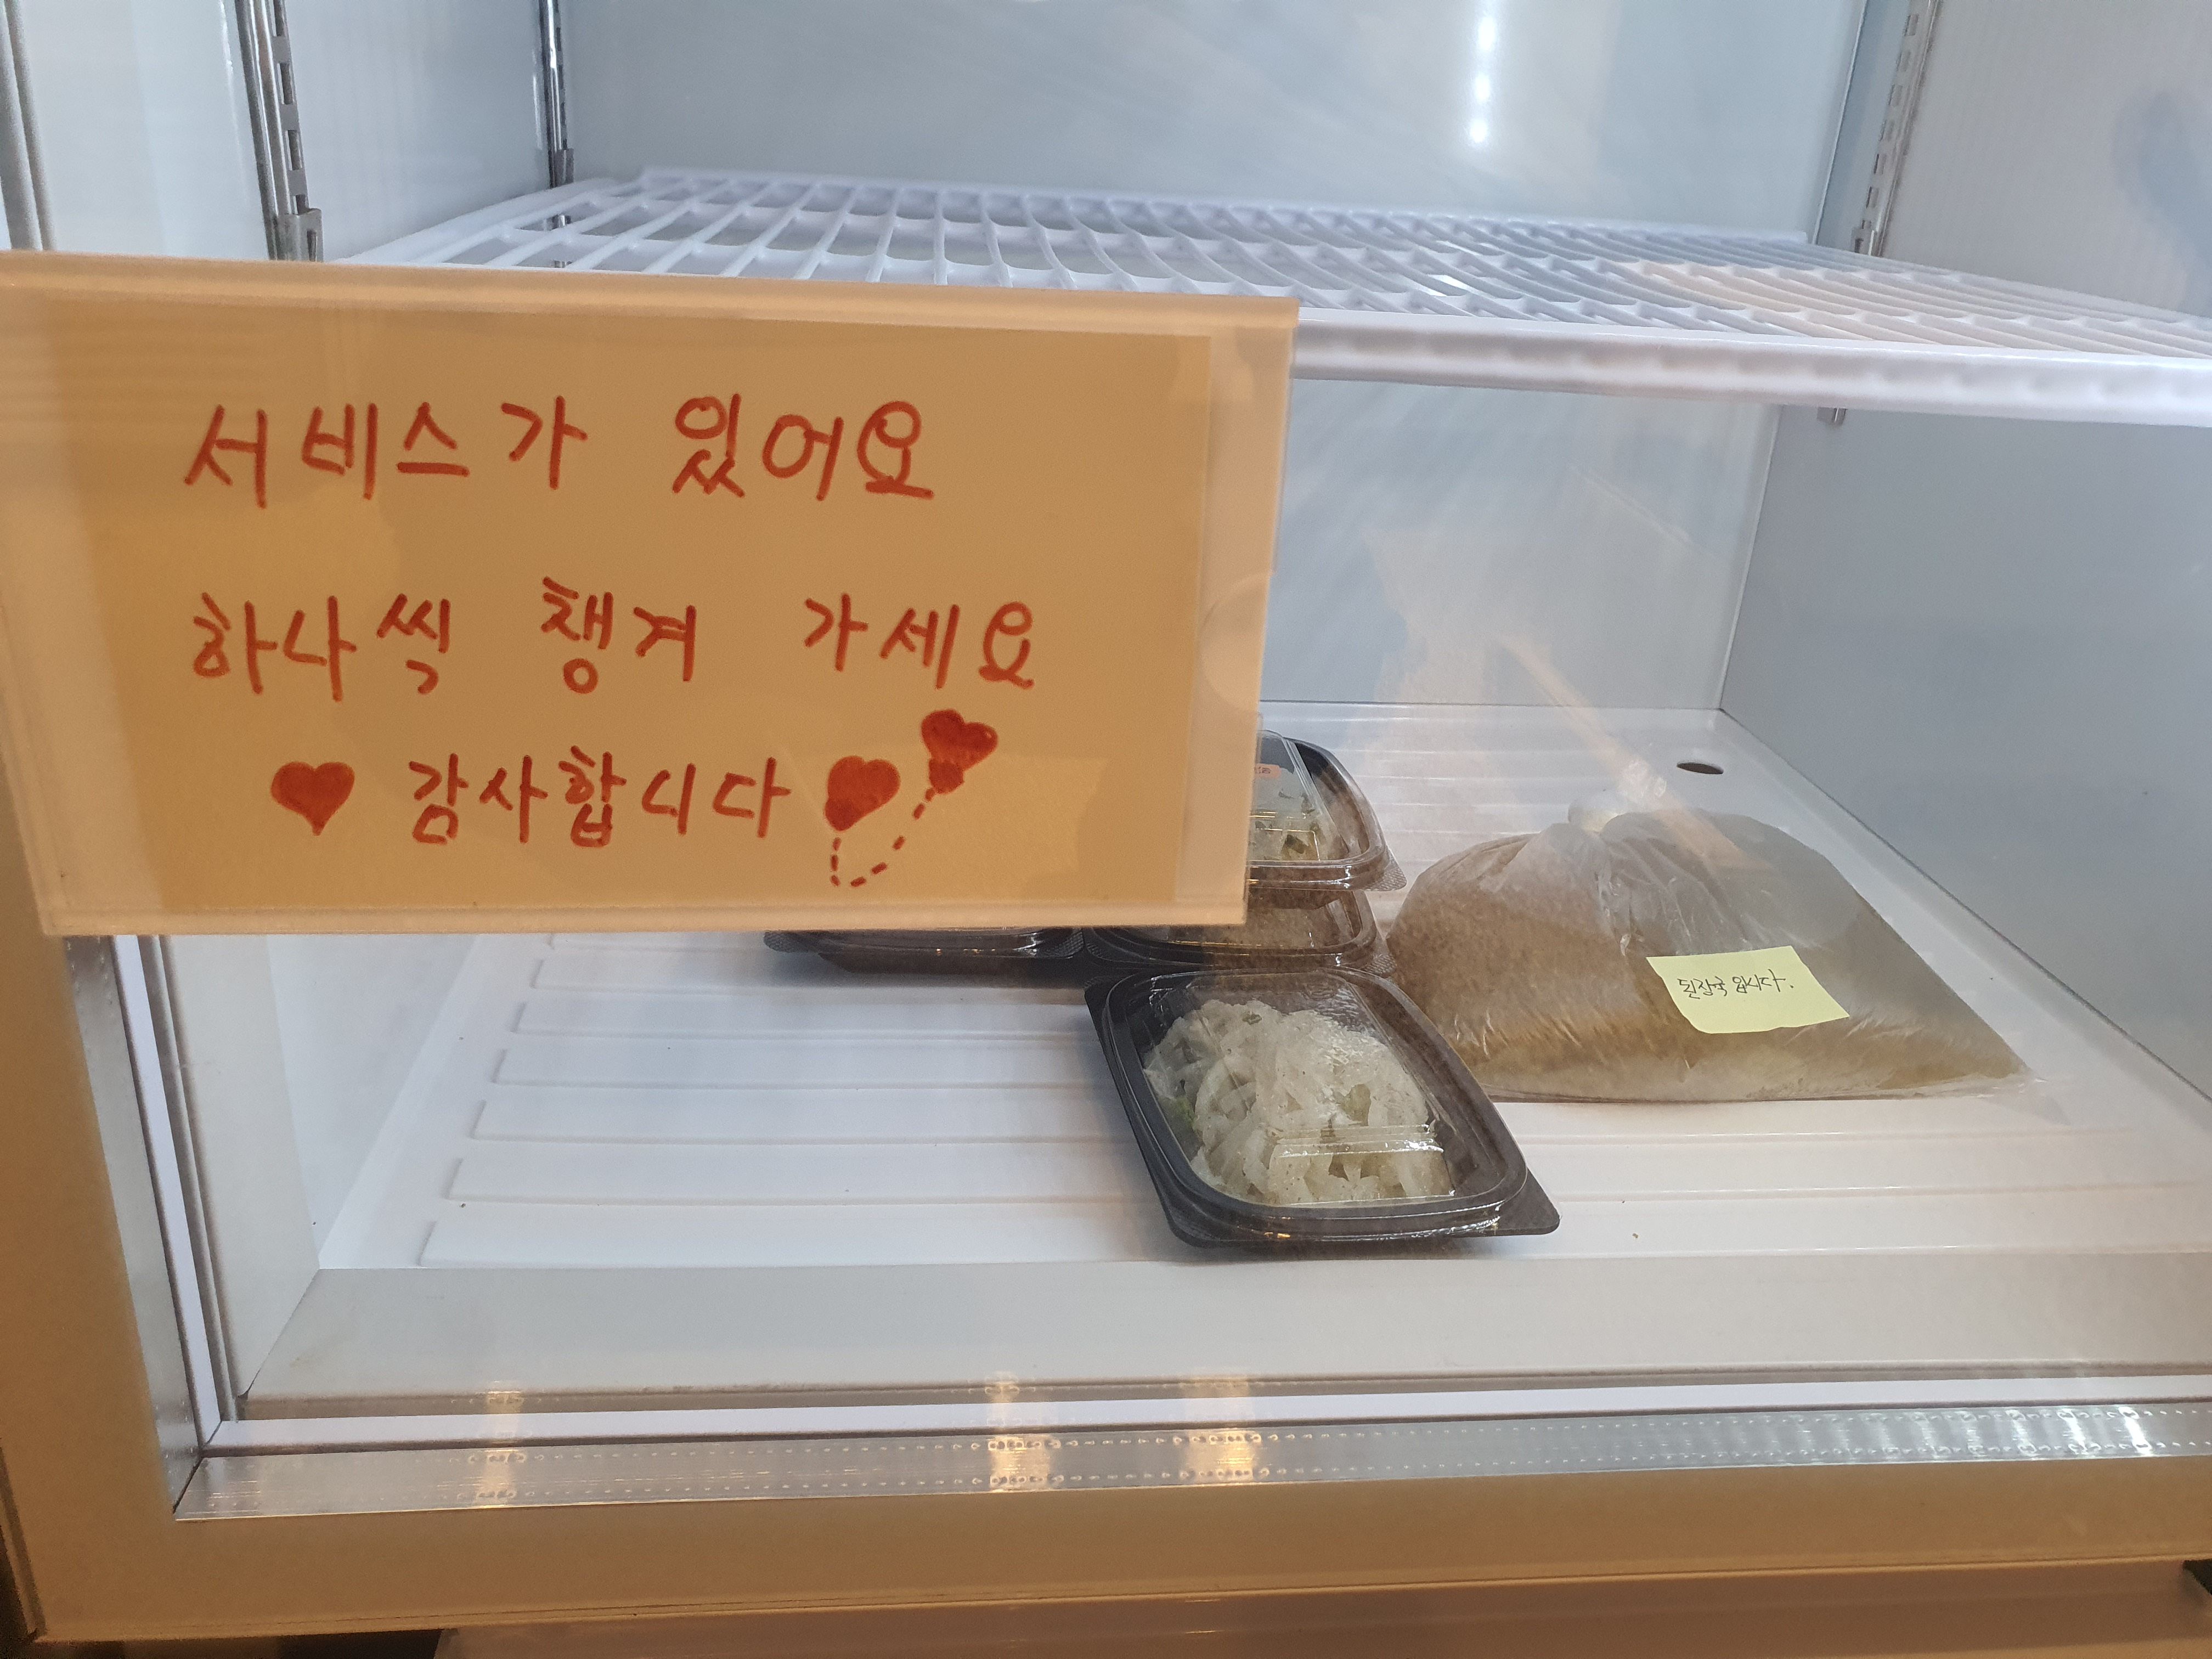 서비스가 있어요
하나씩 챙겨 가세요
감사합니다
된장국 입니다.